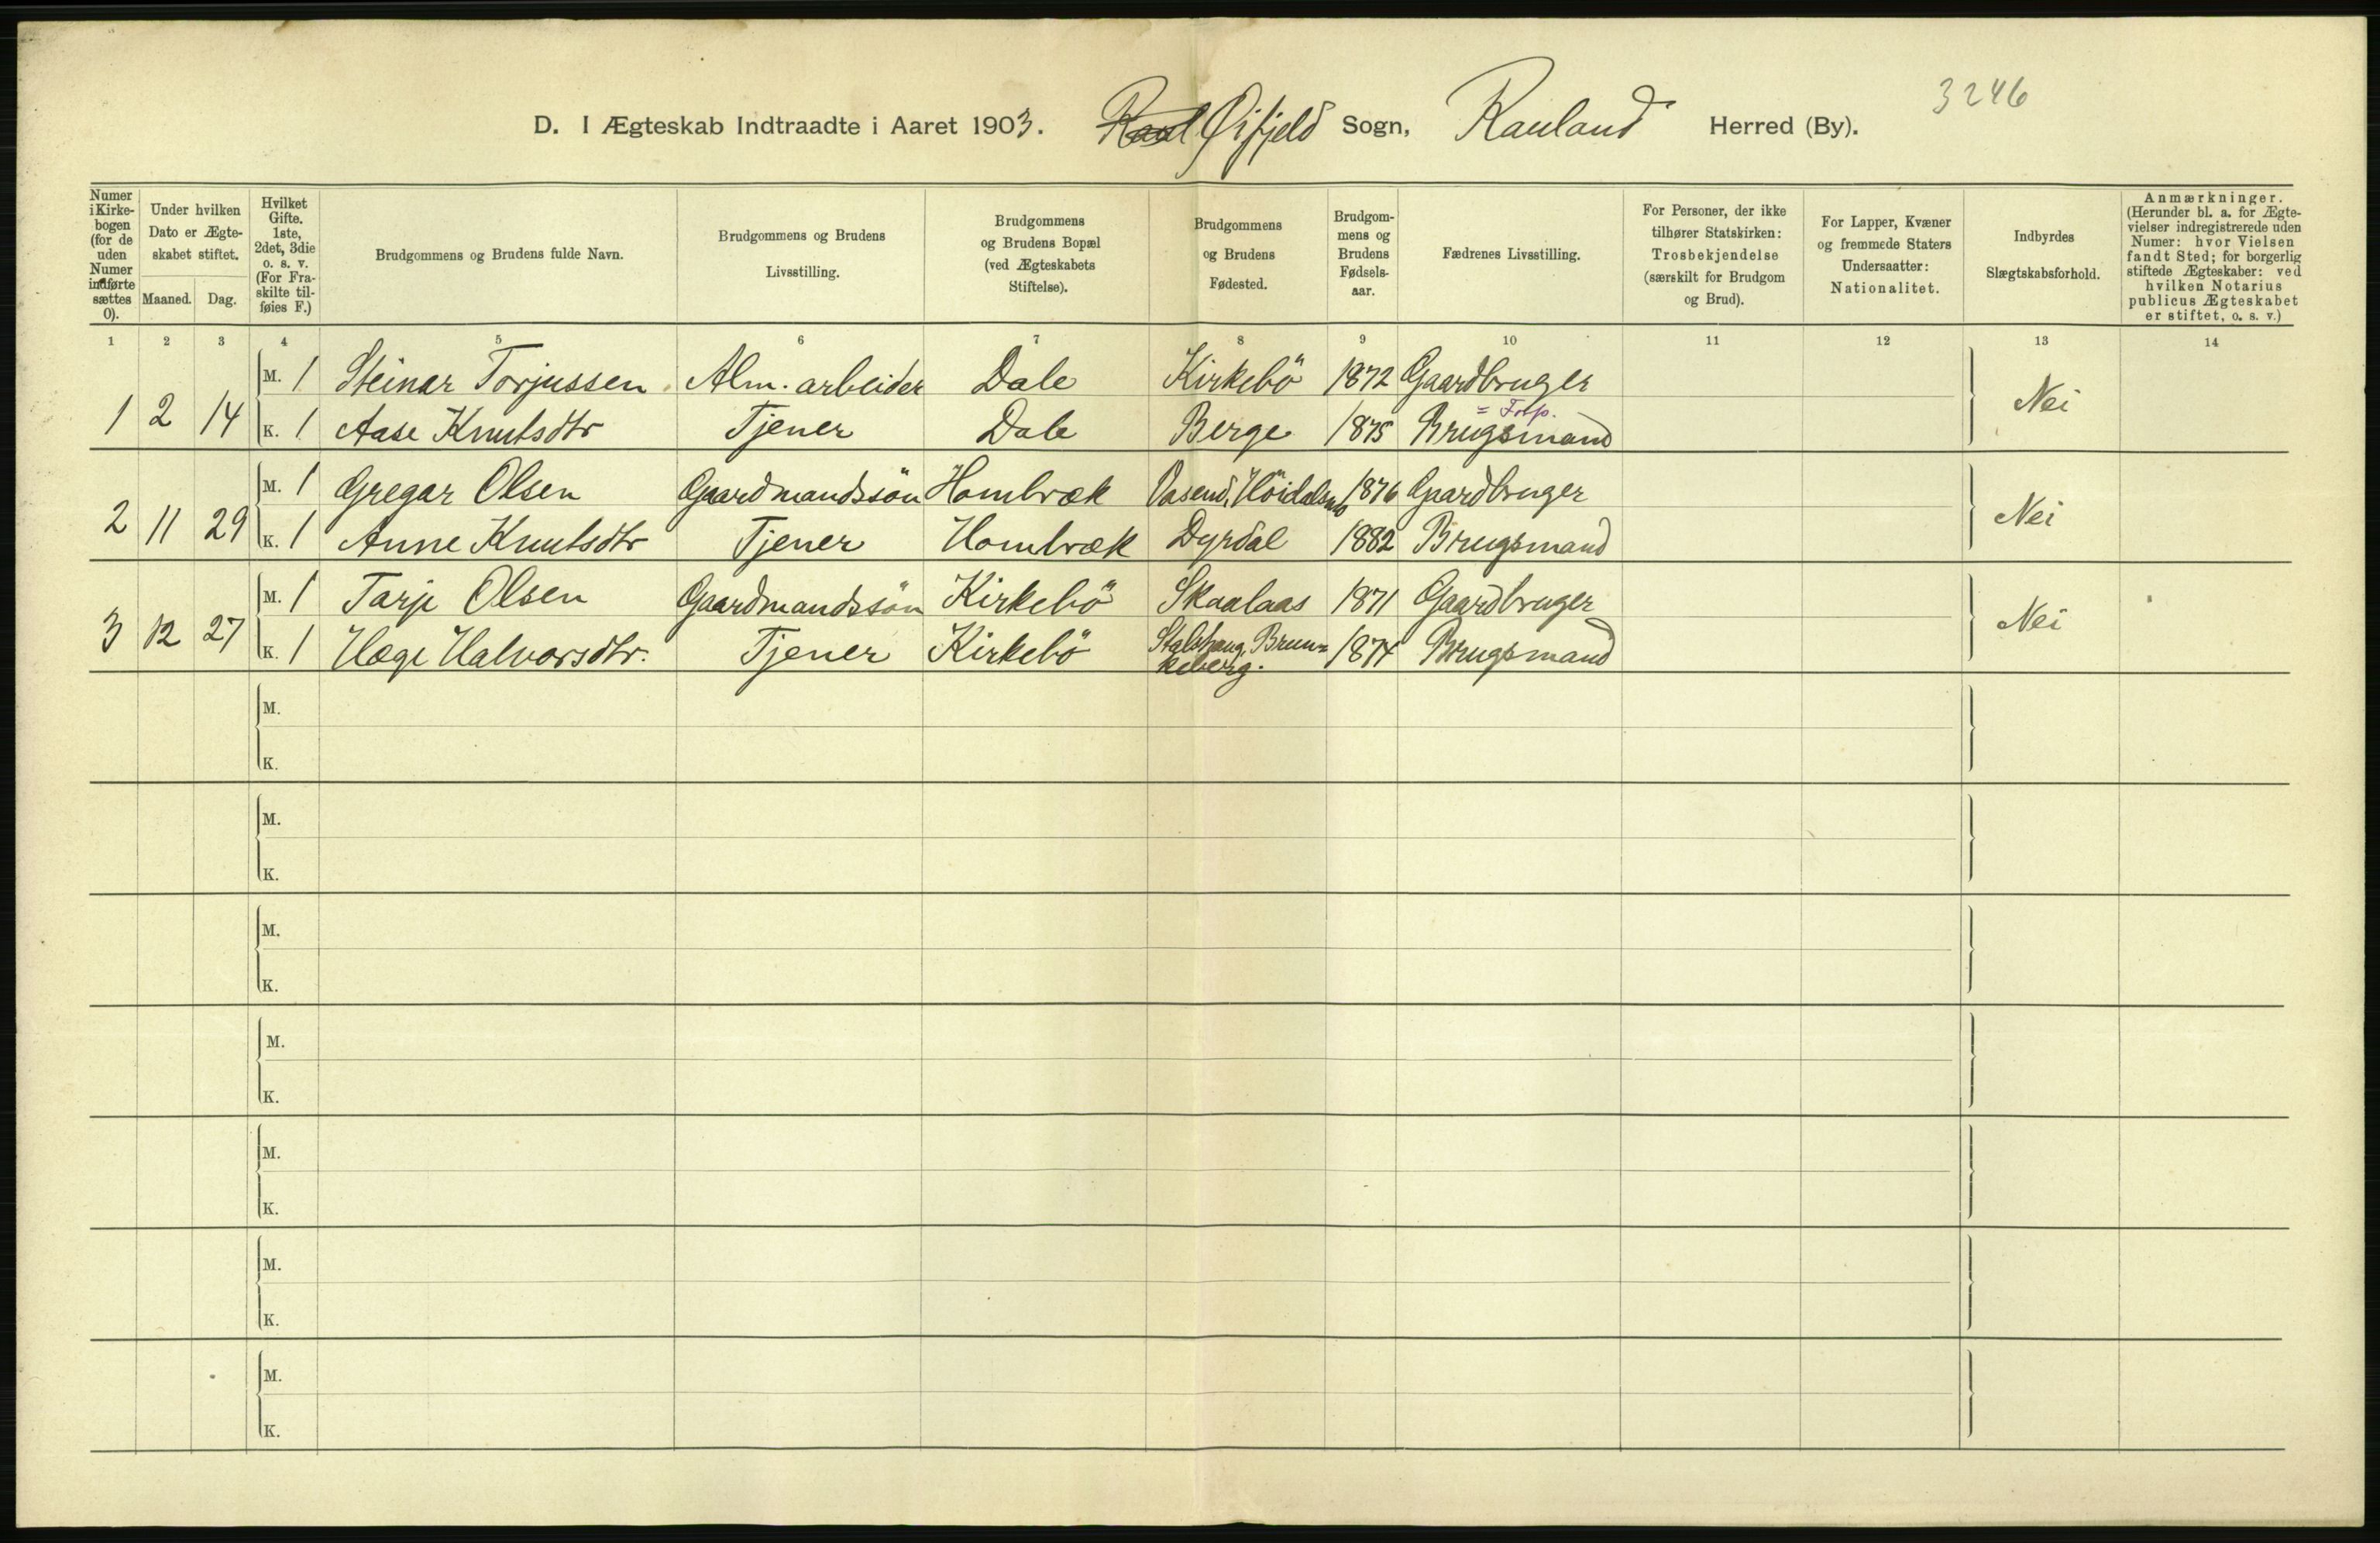 3246
D. I Ægteskab Indtraadte i Aaret 1903. Øifjeld Sogn, Rauland Herred (By).
Numer i Kirkebogen (for de uden Numer indførte sættes 0).
Under hvilken Dato er Ægteskabet stiftet.
Maaned. Dag.
Hvilket Gifte. 1ste, 2det, 3die o. s. v. (For Fraskilte tilføies F.)
Brudgommens og Brudens fulde Navn.
Brudgommens og Brudens Livsstilling.
Brudgommens og Brudens Bopæl (ved Ægteskabets Stiftelse).
Brudgommens og Brudens Fødested.
Brudgommens og Brudens Fødselsaar.
Fædrenes Livsstilling.
For Personer, der ikke tilhører Statskirken: Trosbekjendelse (særskilt for Brudgom og Brud).
For Lapper, Kvæner og fremmede Staters Undersaatter: Nationalitet.
Indbyrdes Slægtskabsforhold.
Anmærkninger. (Herunder bl. a. for Ægtevielser indregistrerede uden Numer: hvor Vielsen fandt Sted; for borgerlig stiftede Ægteskaber: ved hvilken Notarius publicus Ægteskabet er stiftet, o. s. v.)
1 2 3 4 5 6 7 8 9 10 11 12 13 14
M. 1 Steinar Torjussen Alm. arbeider Dale Kirkebö 1872 Gaardbruger
= Forp.
1 2 14 K. 1 Aase Knutsdtr Tjener Dale Berge 1875 Brugsmand Nei
M. 1 Gregar Olsen Gaardmandssön Hombvæk Vasend, Höidalsmo 1876 Gaardbruger
2 11 29 K. 1 Anne Knutsdtr Tjener Hombvæk Dyrdal 1882 Brugsmand Nei
M. 1 Tarje Olsen Gaardmandssön Kirkebö Skaalaas 1871 Gaardbruger
3 12 27 K. 1 Hæge Halvorsdtr. Tjener Kirkebö Brun=keberg. 1874 Brugsmand Nei
M.
K.
M.
K.
M.
K.
M.
K.
M.
K.
M.
K.
M.
K.